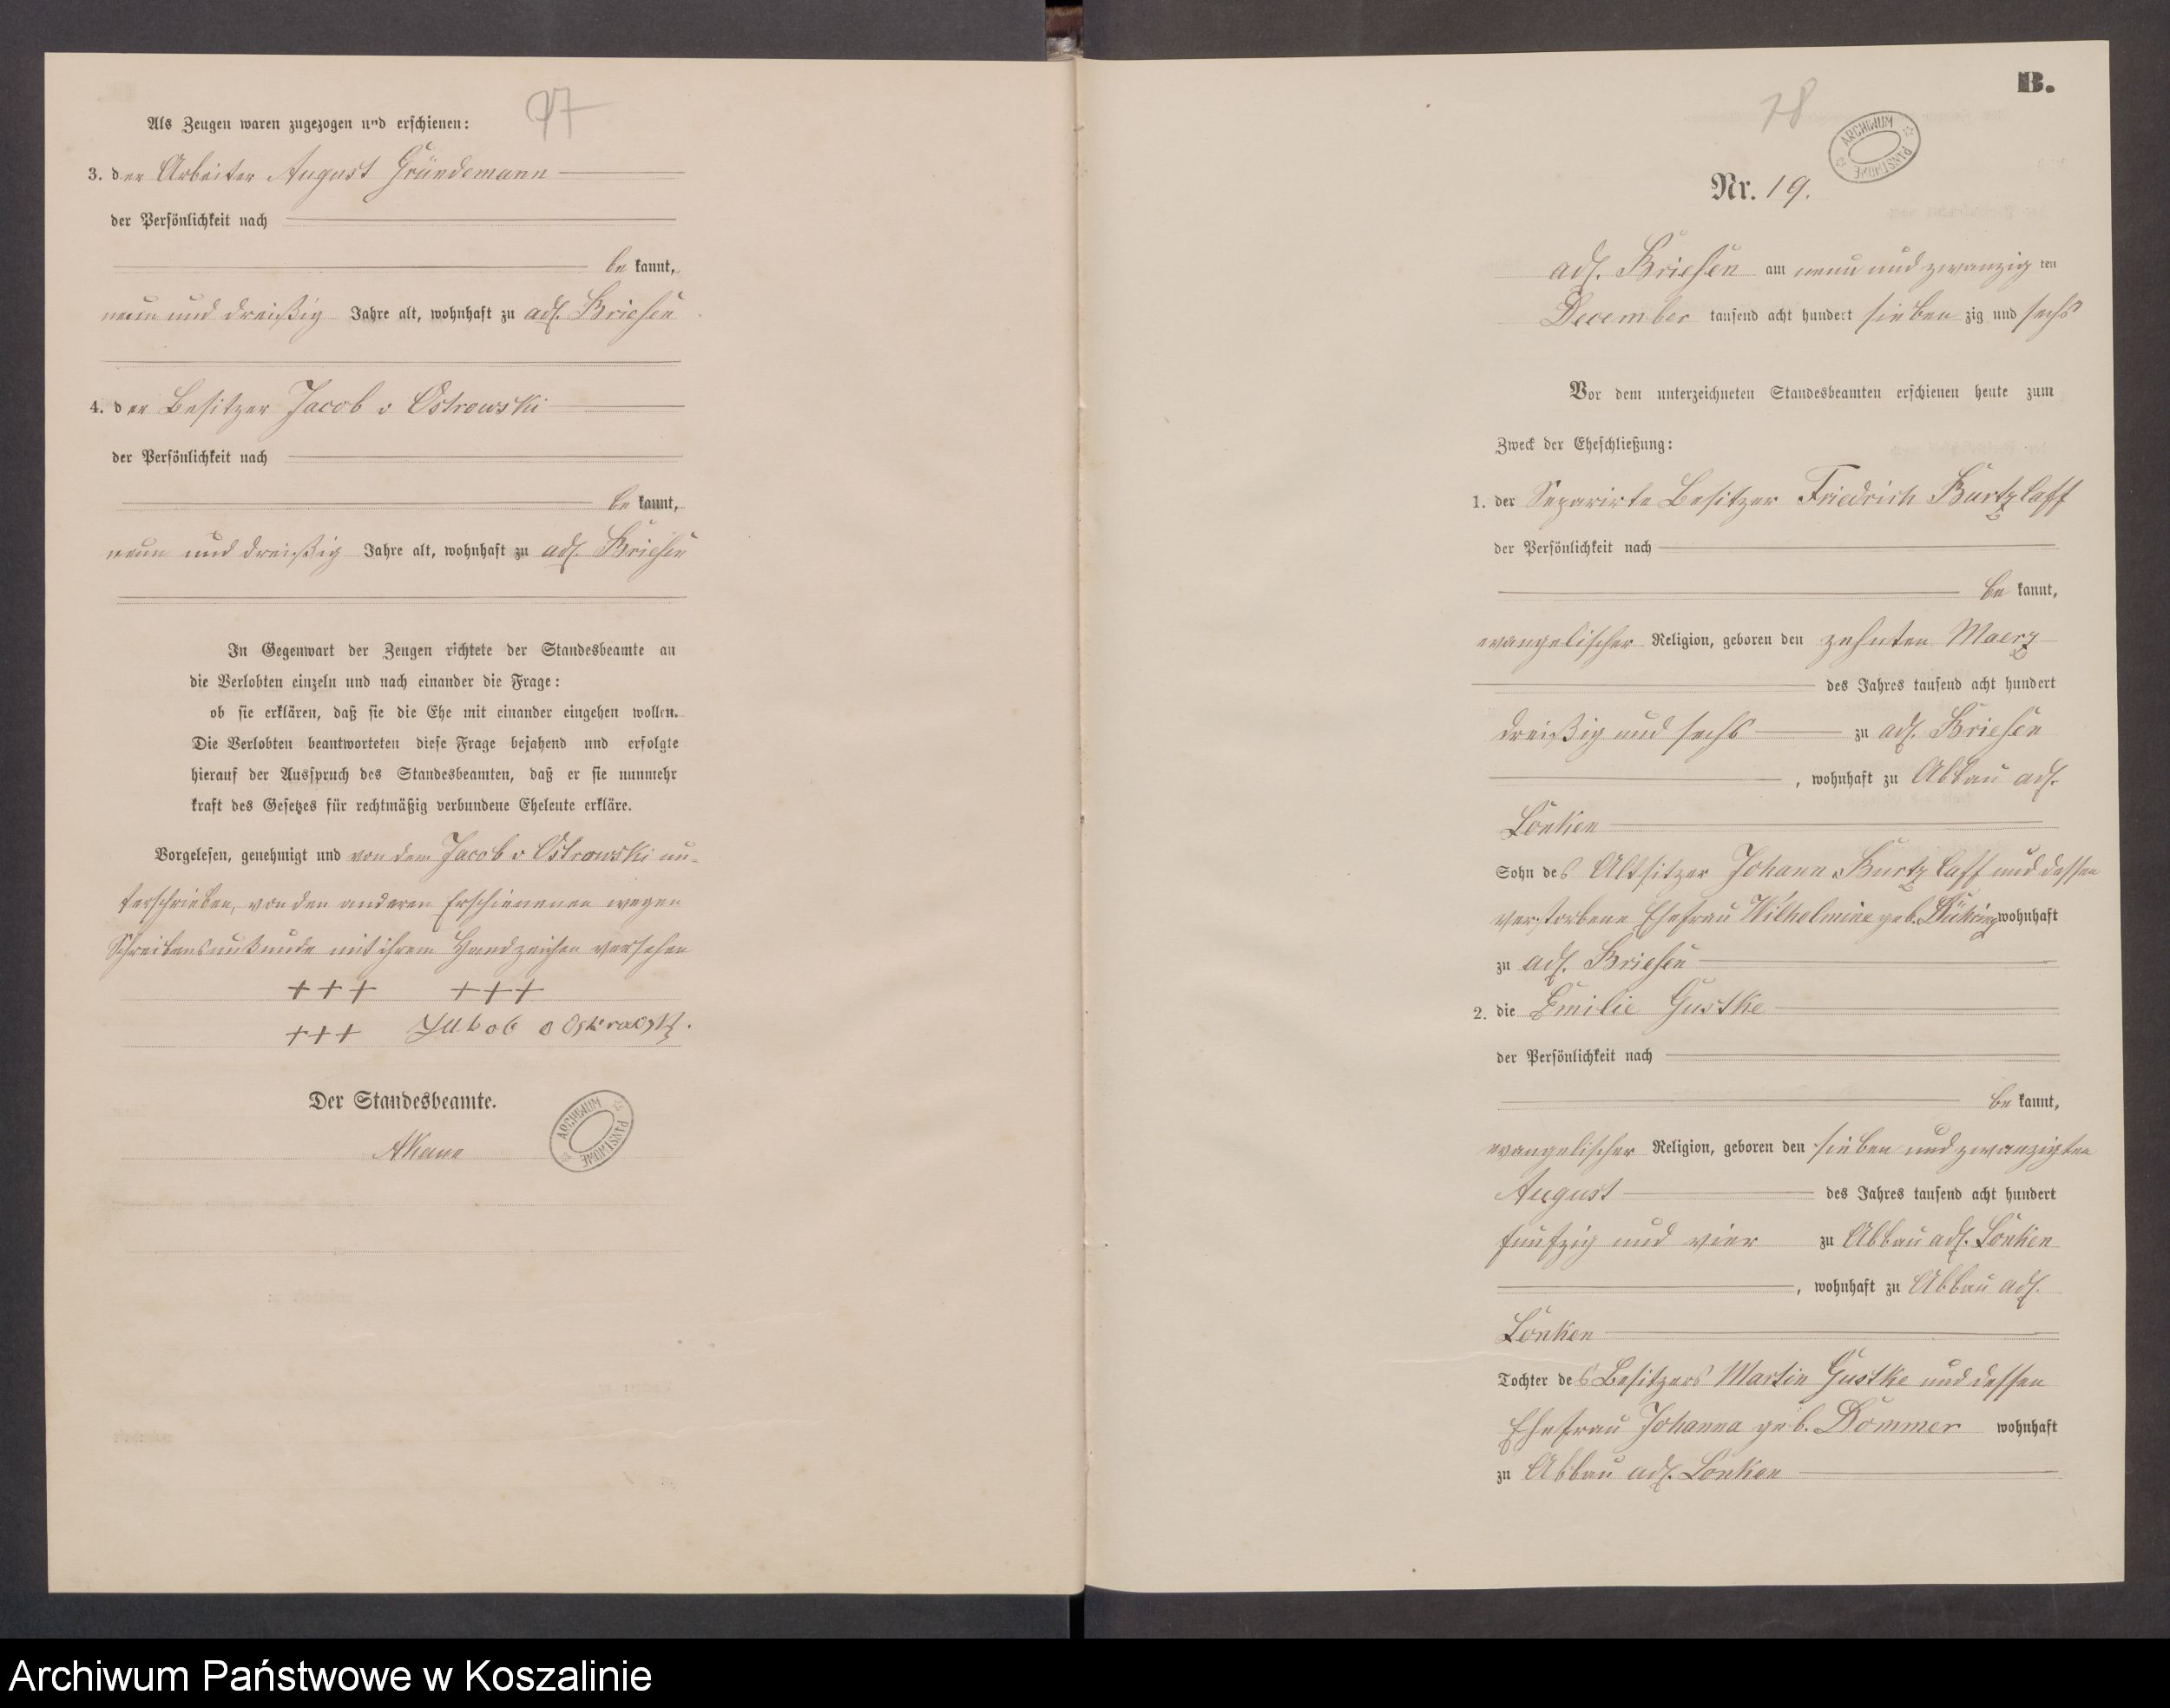 97
Als Zeugen waren zugezogen und erschienen:
3. der Arbeiter August Gründemann
der Persönlichkeit nach
be kannt,
neun und dreißig Jahre alt, wohnhaft zu adl. Briesen
4. der Besitzer Jacob v Ostrowski
der Persönlichkeit nach
be kannt,
neun und dreißig Jahre alt, wohnhaft zu adl. Briesen
In Gegenwart der Zeugen richtete der Standesbeamte an
die Verlobten einzeln und nach einander die Frage:
ob sie erklären, daß sie die Ehe mit einander eingehen wollen.
Die Verlobten beantworteten diese Frage bejahend und erfolgte
hierauf der Ausspruch des Standesbeamten, daß er sie nunmehr
kraft des Gesetzes für rechtmäßig verbundene Eheleute erkläre.
Vorgelesen, genehmigt und von dem Jacob v Ostrowski un-
terschrieben, von den anderen Erschienenen wegen
Schreibensunkunde mit ihrem Handzeichen versehen
+++ +++
+++ Jakob v
Der Standesbeamte.
ARCHIWUM PAŃSTWOWE
B.
78
ARCHIWUM PAŃSTWOWE
Nr. 19.
adl. Briesen am neun und zwanzig ten
December tausend acht hundert sieben zig und sechs
Vor dem unterzeichneten Standesbeamten erschienen heute zum
Zweck der Eheschließung:
1. der Separirte Besitzer Friedrich Kurtzlaff
der Persönlichkeit nach
be kannt,
evangelischer Religion, geboren den zehnten Maerz
des Jahres tausend acht hundert
dreißig und sechs zu adl. Briesen
, wohnhaft zu Abbau adl.
Lonken
Sohn des Altsitzer Johann Kurtzlaff und dessen
verstorbene Ehefrau Wilhelmine geb. wohnhaft
zu adl. Briesen
2. die Emilie Gustke
der Persönlichkeit nach
be kannt,
evangelischer Religion, geboren den sieben und zwanzigten
August des Jahres tausend acht hundert
fünfzig und vier zu Abbau adl. Lonken
, wohnhaft zu Abbau adl.
Lonken
Tochter des Besitzers Martin Gustke und dessen
Ehefrau Johanna geb. Dommer wohnhaft
zu Abbau adl. Lonken
Archiwum Państwowe w Koszalinie